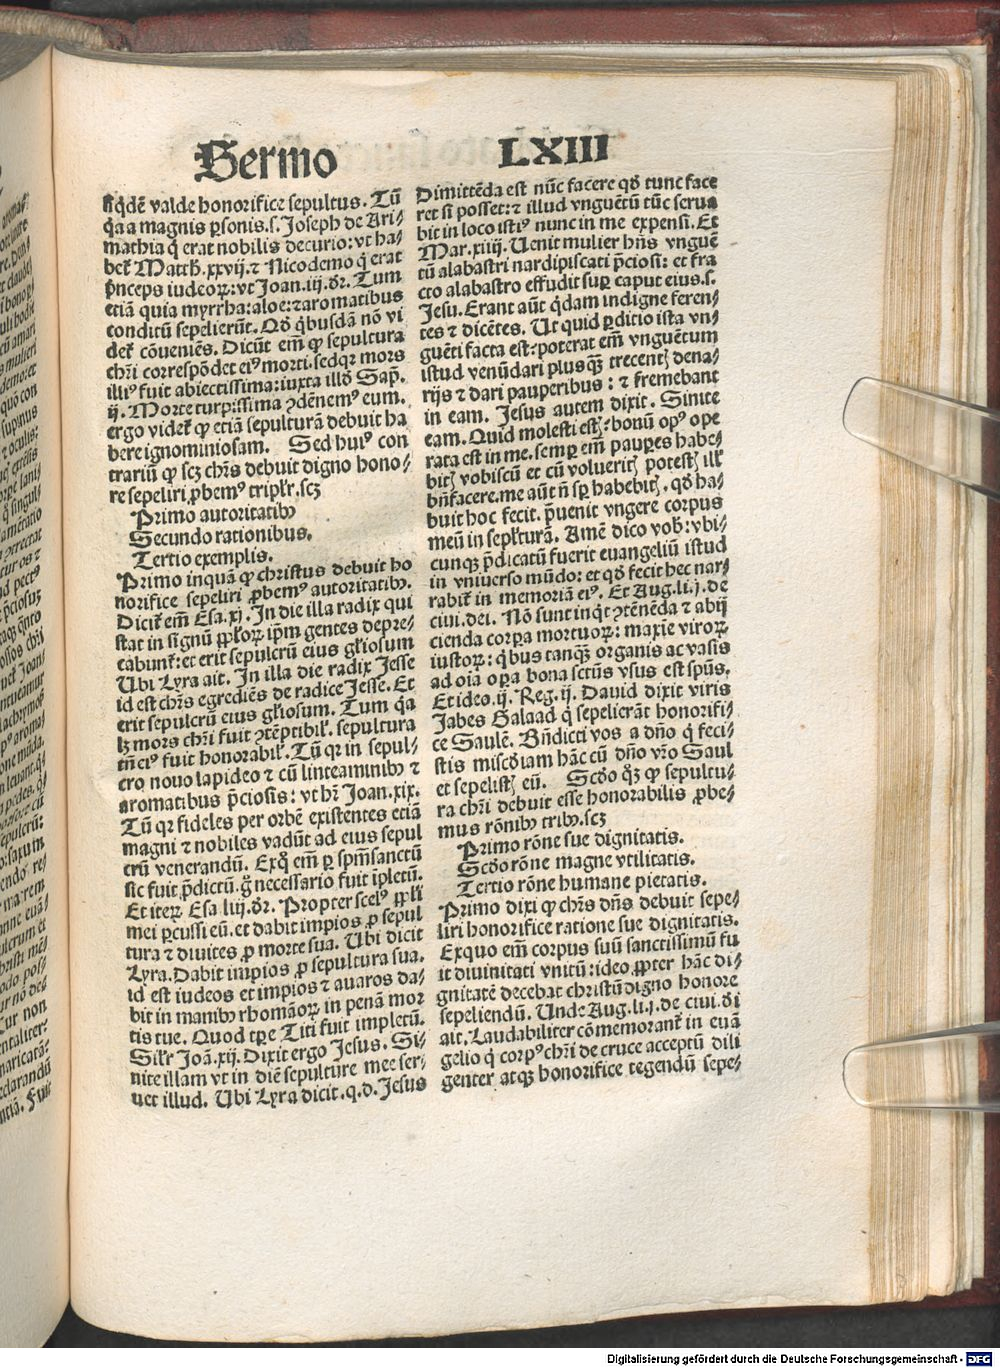 Sermo LXIII
siqdē valde honorifice sepultus. Tū
qꝛ a magnis ꝑsonis.s. Joseph de Ari⸗
mathia q̇ erat nobilis decurio: vt ha⸗
betᷣ Matth̄. xxvij. ⁊ Nicodemo q̇ erat
p̄nceps iudeoꝝ: vt Joan. iij. dr̄. Tum
etiā quia myrrha: aloe: ⁊ aromatibus
conditū sepelierūt. Qḋ q̇busdā nō vi
detᷣ cōueniēs. Dicūt em̄ ꝙ sepultura
chr̄i correspōdet eiꝰ morti. sed qꝛ mors
illiꝰ fuit abiectissima: iuxta illḋ Sap̄.
ij. Morte turpissima ꝯdēnemꝰ eum.
ergo videtᷣ ꝙ etiā sepulturā debuit ha
bere ignominiosam. Sed huiꝰ con
trariū ꝙ scꝫ chr̄s debuit digno hono⸗
re sepeliri ꝓbemꝰ triplr̄. scꝫ
Primo autoritatibꝰ
Secundo rationibus.
Tertio exemplis.
Primo inquā ꝙ christus debuit ho
norifice sepeliri ꝓbemꝰ autoritatibꝰ.
Dicitᷣ em̄ Esa. xj. In die illa radix qui
stat in signū ppl̄oꝝ ip̄m gentes depre⸗
cabuntᷣ: et erit sepulcrū eius gl̄iosum
Ubi Lyra ait. In illa die radix Jesse
id est chr̄s egrediēs de radice Jesse. Et
erit sepulcrū eius gl̄iosum. Tum qꝛ
lꝫ mors chr̄i fuit ꝯtēptibil̓. sepultura
tn̄ eiꝰ fuit honorabil̓. Tū qꝛ in sepul⸗
cro nouo lapideo ⁊ cū linteaminibꝰ ⁊
aromatibus p̄ciosis: vt hr̄ Joan. xix.
Tū qꝛ fideles per orbē existentes etiā
magni ⁊ nobiles vadūt ad eius sepul
crū venerandū. Exq̊ em̄ ꝑ spm̄sanctū
sic fuit p̄dictū. g̊ necessario fuit īpletū.
Et iteꝝ Esa. liij. dr̄. Propter scelꝰ ppl̄i
mei ꝑcussi eū. et dabit impios ꝓ sepul
tura ⁊ diuites ꝓ morte sua. Ubi dicit
Lyra. Dabit impios ꝓ sepultura sua.
id est iudeos et impios ⁊ auaros da⸗
bit in manibꝰ rhomāoꝝ in penā mor
tis tue. Quod tp̄e Titi fuit impletū.
Silr̄ Joā. xij. Dixit ergo Jesus. Si⸗
nite illam vt in diē sepulture mee ser⸗
uet illud. Ubi Lyra dicit. q.d. Jesus
Dimittēda est nūc facere qḋ tunc face
ret si posset: ⁊ illud vnguētū tūc serua
bit in loco istiꝰ nunc in me expensi. Et
Mar. xiiij. Uenit mulier hn̄s vnguē
tū alabastri nardi piscati p̄ciosi: et fra
cto alabastro effudit suꝑ caput eius.s.
Jesu. Erant aūt q̇dam indigne feren⸗
tes ⁊ dicētes. Ut quid ꝑditio ista vn⸗
guēti facta est? poterat em̄ vnguētum
istud venūdari plusqꝫ trecentꝭ dena⸗
rijs ⁊ dari pauperibus: ⁊ fremebant
in eam. Jesus autem dixit. Sinite
eam. Quid molesti estꝭ? bonū opꝰ ope
rata est in me. semꝑ em̄ pauꝑes habe⸗
bitꝭ vobiscū et cū volueritꝭ potestꝭ ill̓
bn̄facere. me aūt n̄ sꝑ habebitꝭ. qḋ ha⸗
buit hoc fecit. p̄uenit vngere corpus
meū in sepl̓turā. Amē dico vob̓: vbi⸗
cunqꝫ p̄dicatū fuerit euangeliū istud
in vniuerso mūdo: et qḋ fecit hec nar⸗
rabitᷣ in memoriā eiꝰ. Et Aug. li. j. de
ciui. dei. Nō sunt inq̇t ꝯtēnēda ⁊ abij
cienda corꝑa mortuoꝝ: maxie viroꝝ
iustoꝝ: q̇bus tanqꝫ organis ac vasis
ad oīa oꝑa bona sctūs vsus est spūs.
Et ideo. ij. Reg. ij. Dauid dixit viris
Jabes Galaad q̇ sepelierāt honorifi⸗
ce Saulē. Bn̄dicti vos a dn̄o q̇ feci⸗
stis miscḋiam hāc cū dn̄o vr̄o Saul
et sepelistꝭ eū. Scḋo qꝫ ꝙ sepultu⸗
ra chr̄i debuit esse honorabilis ꝓbe⸗
mus rōnibꝰ tribꝰ. scꝫ
Primo rōne sue dignitatis.
Scḋo rōne magne vtilitatis.
Tertio rōne humane pietatis.
Primo dixi ꝙ chr̄s dn̄s debuit sepe⸗
liri honorifice ratione sue dignitatis.
Exquo em̄ corpus suū sanctissimū fu
it diuinitati vnitū: ideo ꝓpter hāc di⸗
gnitatē decebat christū digno honore
sepeliendū. Unde Aug. li. j. de ciui. dī
ait. Laudabiliter cōmemorantᷣ in euā
gelio q̇ corpꝰ chr̄i de cruce acceptū dili
genter atqꝫ honorifice tegendū sepe⸗
Digitalisierung gefördert durch die Deutsche Forschungsgemeinschaft - DFG